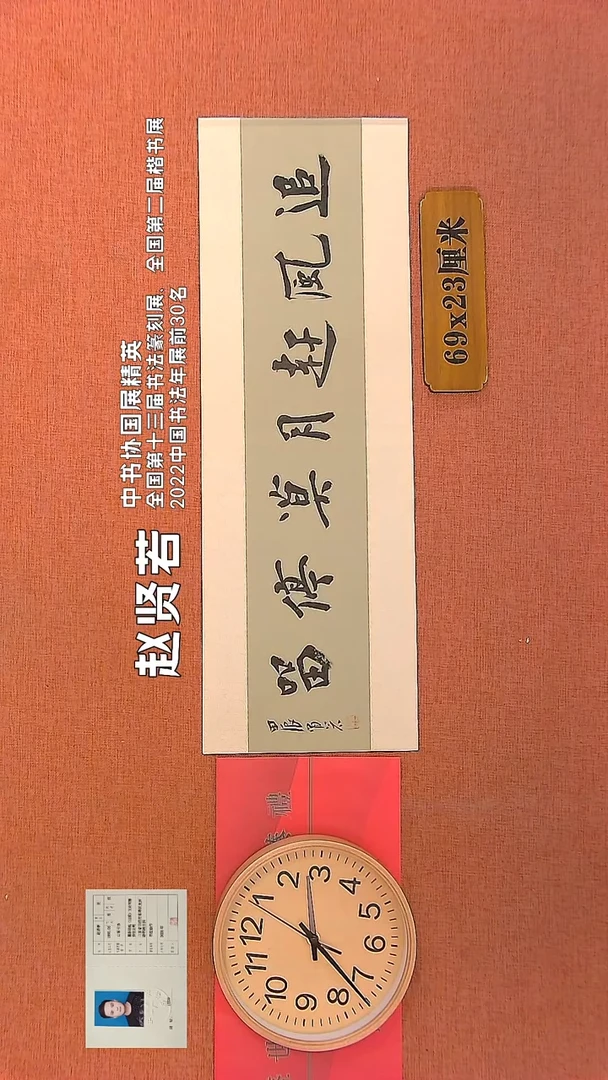 赵贤若
中书协国展精英
全国第十三届书法篆刻展、全国第二届楷书展
2022中国书法年展前30名
追風赶月莫停留
69x23厘米
12
1
2
3
4
5
6
7
8
9
10
11